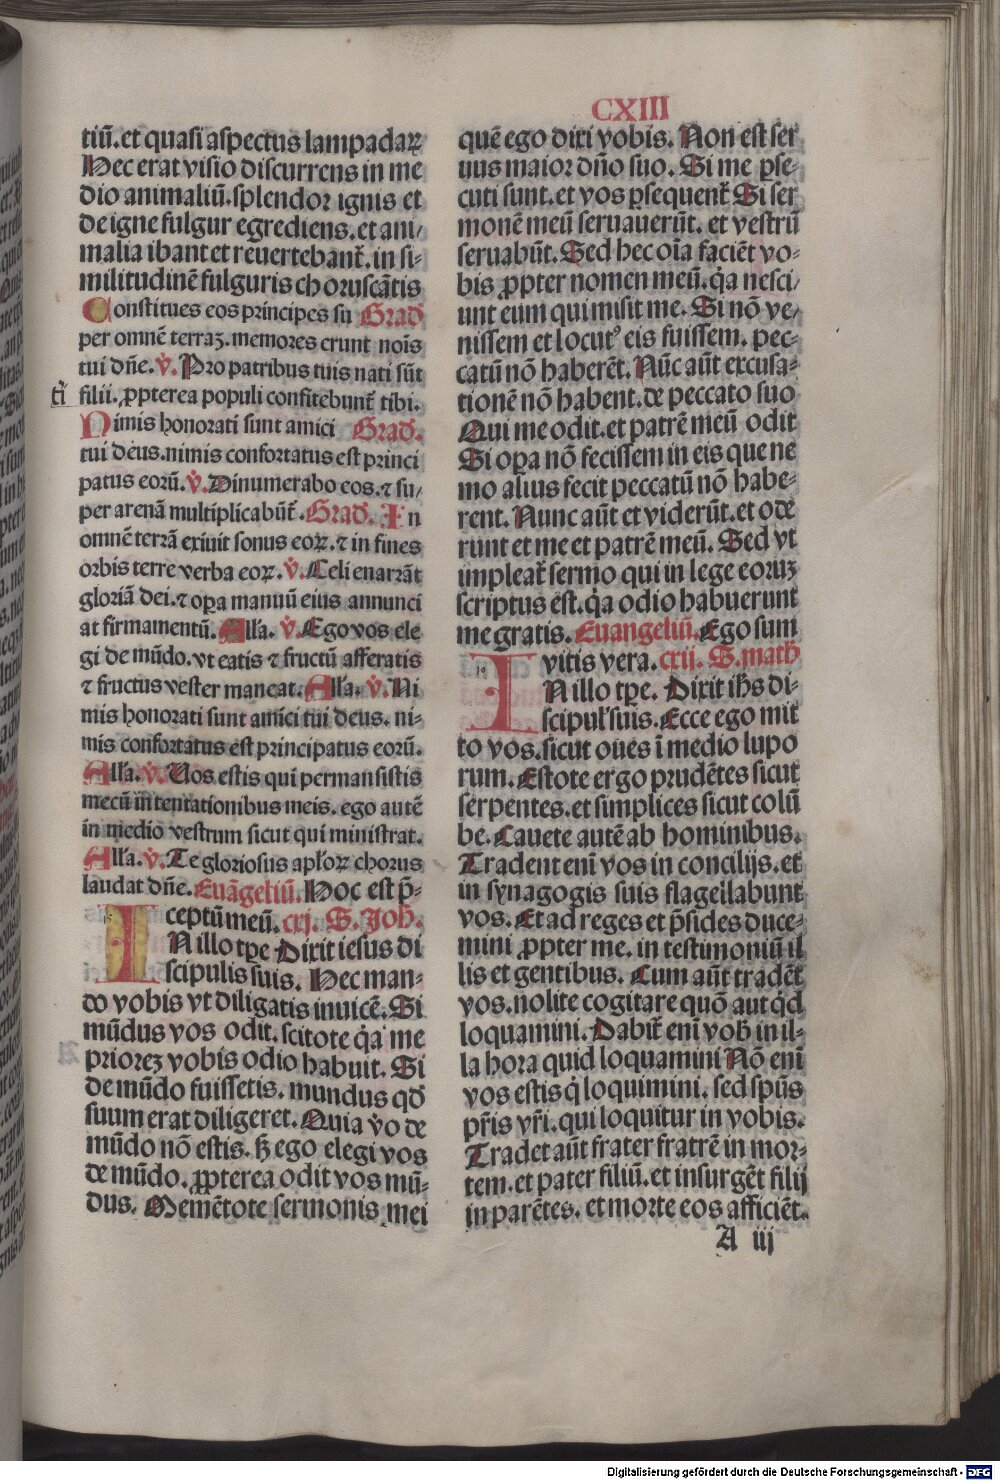 CXIII
tiū.et quasi aspectus lampadaꝝ
Hec erat visio discurrens in me
dio animaliū.splendor ignis et
de igne fulgur egrediens.et ani/
malia ibant et reuertebant̄.in si-
militudinē fulguris choruscātis
Constitues eos principes su Grad̄
per omnē terraꝫ.memores erunt noīs
tui dn̄e. v̓. Pro patribus tuis nati sūt
tī filii. ꝓpterea populi confitebunt̄ tibi.
Nimis honorati sunt amici Grad̄.
tui deus.nimis confortatus est princi
patus eorū. v̓. Dinumerabo eos.⁊ su/
per arenā multiplicabūt̄. Grad̄. In
omnē terrā exiuit sonus eoꝝ.⁊ in fines
orbis terre verba eoꝝ. v̓. Celi enarrāt
gloriā dei.⁊ oꝑa manuū eius annunci
at firmamentū. Alła. v̓. Ego vos ele
gi de mūdo.vt eatis ⁊ fructū afferatis
⁊ fructus vester maneat. Alła. v̓. Ni
mis honorati sunt amici tui deus. ni-
mis confortatus est principatus eorū.
Alła. v̓. Uos estis qui permansistis
mecū in tentationibus meis. ego autē
in medio vestrum sicut qui ministrat.
Alła. v̓. Te gloriosus apłoꝝ chorus
laudat dn̄e. Euāgeliū. Hoc est p̄-
ceptū meū. cxj. S. Joh̄.
IN illo tꝑe Dixit iesus di
scipulis suis. Hec man-
do vobis vt diligatis inuicē. Si
mūdus vos odit.scitote q̄a me
prioreꝫ vobis odio habuit. Si
de mūdo fuissetis. mundus qd̄
suum erat diligeret. Quia v̓o de
mūdo nō estis. ꜩ ego elegi vos
de mūdo. ꝓpterea odit vos mū-
dus. Memētote sermonis mei
quē ego dixi vobis. Non est ser
uus maior dn̄o suo. Si me ꝑse-
cuti sunt.et vos ꝑsequent̄ Si ser
monē meū seruauerūt. et vestrū
seruabūt. Sed hec oīa faciēt vo-
bis ꝓpter nomen meū. q̄a nesci/
unt eum qui misit me. Si nō ve/
nissem et locutꝰ eis fuissem. pec-
catū nō haberēt. Nūc aūt excusa-
tionē nō habent.de peccato suo
Qui me odit.et patrē meū odit
Si oꝑa nō fecissem in eis que ne
mo alius fecit peccatū nō habe-
rent. Nunc aūt et viderūt.et ode
runt et me et patrē meū. Sed vt
impleat̄ sermo qui in lege eoruꝫ
scriptus est. q̄a odio habuerunt
me gratis. Euangeliū. Ego sum
vitis vera. cxii. S. math̄
IN illo tꝑe. Dixit ih̄s di-
scipuł suis. Ecce ego mit
to vos.sicut oues ī medio lupo
rum. Estote ergo prudētes sicut
serpentes.et simplices sicut colū
be. Cauete autē ab hominibus.
Tradent enī vos in concilijs.et
in synagogis suis flagellabunt
vos. Et ad reges et p̄sides duce-
mini ꝓpter me. in testimoniū il
lis et gentibus. Cum aūt tradēt
vos.nolite cogitare quō aut q̄d
loquamini. Dabit̄ enī vob̄ in il-
la hora quid loquamini Nō enī
vos estis q̄ loquimini. sed spūs
pr̄is vr̄i. qui loquitur in vobis.
Tradet aūt frater fratrē in mor-
tem.et pater filiū.et insurgēt filij
in parētes. et morte eos afficiēt.
A iij
Digitalisierung gefördert durch die Deutsche Forschungsgemeinschaft - DFG